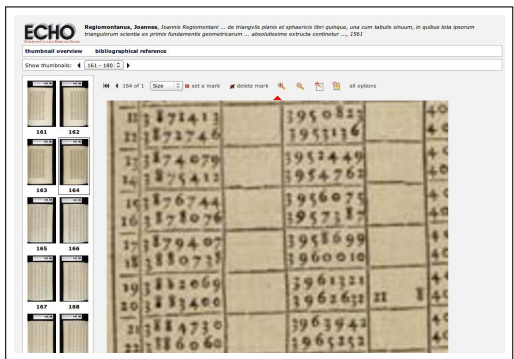 ECHO
Regiomontanus, Joannes, Ioannis Regiomontani ... de triangvlis planis et sphaericis libri quinque, una cum tabulis sinuum, in quibus tota ipsorum
triangulorum scientia ex primis fundamentis geometricarum ... absolutissime extructa continetur ..., 1561
thumbnail overview bibliographical reference
Show thumbnails: 161 - 180
164 of 1 Size set a mark delete mark all options
161 162
163 164
165 166
167 168
11 3871413
12 3872746
13 3874079 3952449
14 3875412
15 3876744 3956075
16 3878076 3957387
17 3879407 3958699
18 3880738 3960010
19 3882069 3961321
20 3883400 3962632 21 8
21 3884730 3963942
22 3886060 3965252